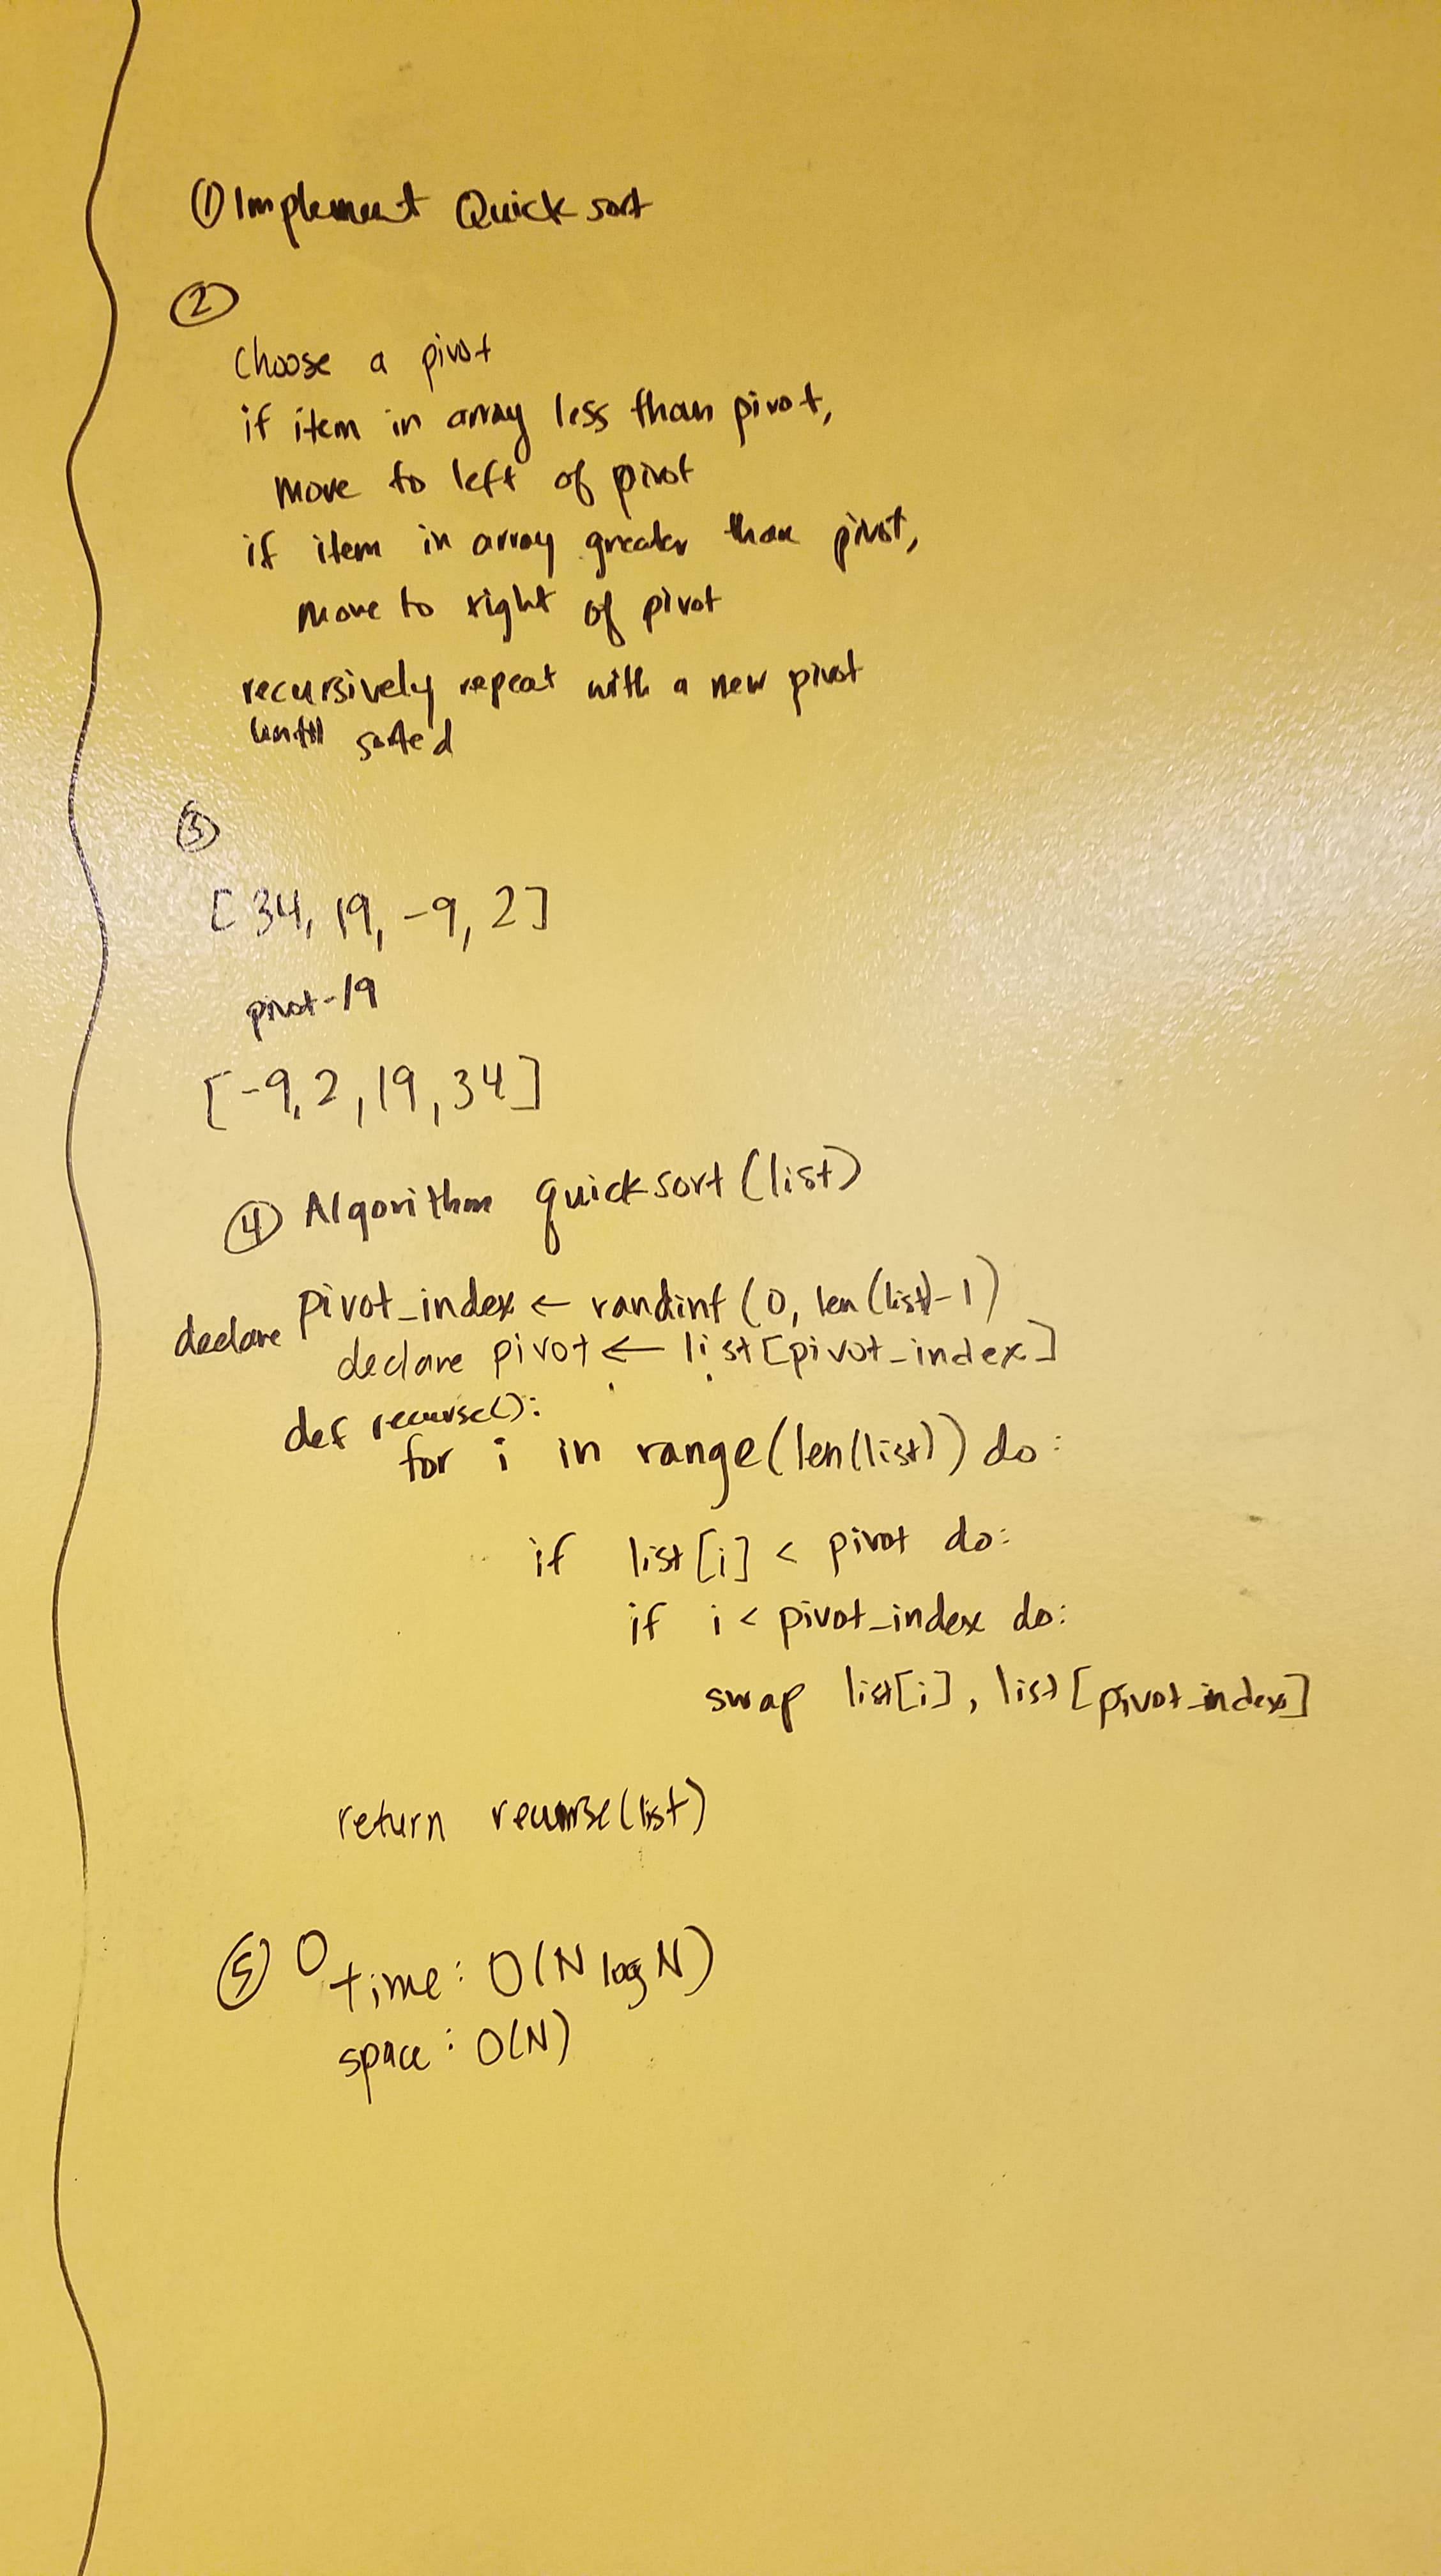 ① Implement Quick sort
②
Choose a pivot
if item in array less than pivot,
move to left of pivot
if item in array greater than pivot,
move to right of pivot
recursively repeat with a new pivot
until sorted
③
[34, 19, -9, 2]
pivot-19
[-9, 2, 19, 34]
④ Algorithm quicksort (list)
declare pivot_index ← randint (0, len(list)-1)
declare pivot ← list[pivot_index]
def recurse():
for i in range(len(list)) do:
if list[i] < pivot do:
if i < pivot_index do:
swap list[i], list[pivot_index]
return recurse(list)
⑤ O time: O(N log N)
space: O(N)